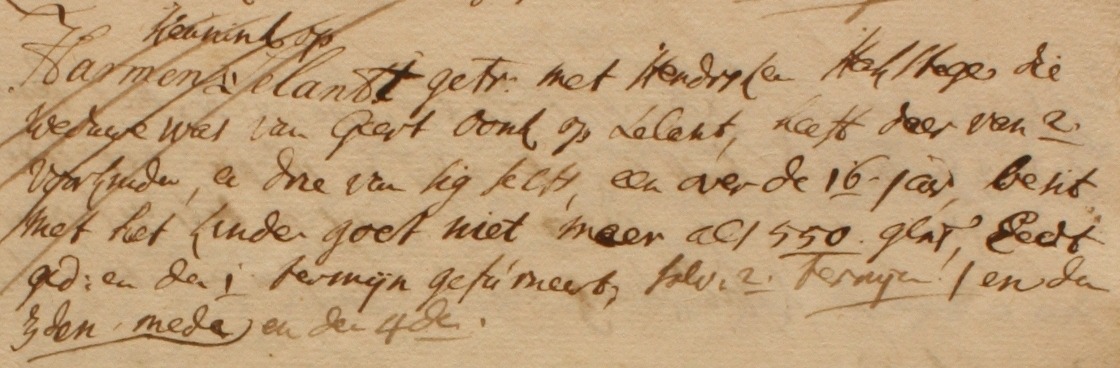 Hennink op
Harmen Lelant getr. met Hendrsken Hekhege die
weduwe was van Geert Oonk op Lelant, heeft daer van 2
voorkinder, en drie van sig selfs, een over de 16 jaer, besit
met het kinder goet niet meer als 550 glns, Eedt
ged: en den 1 termyn gefurneert, solv: 2. termyn / en den
3den mede en den 4den.